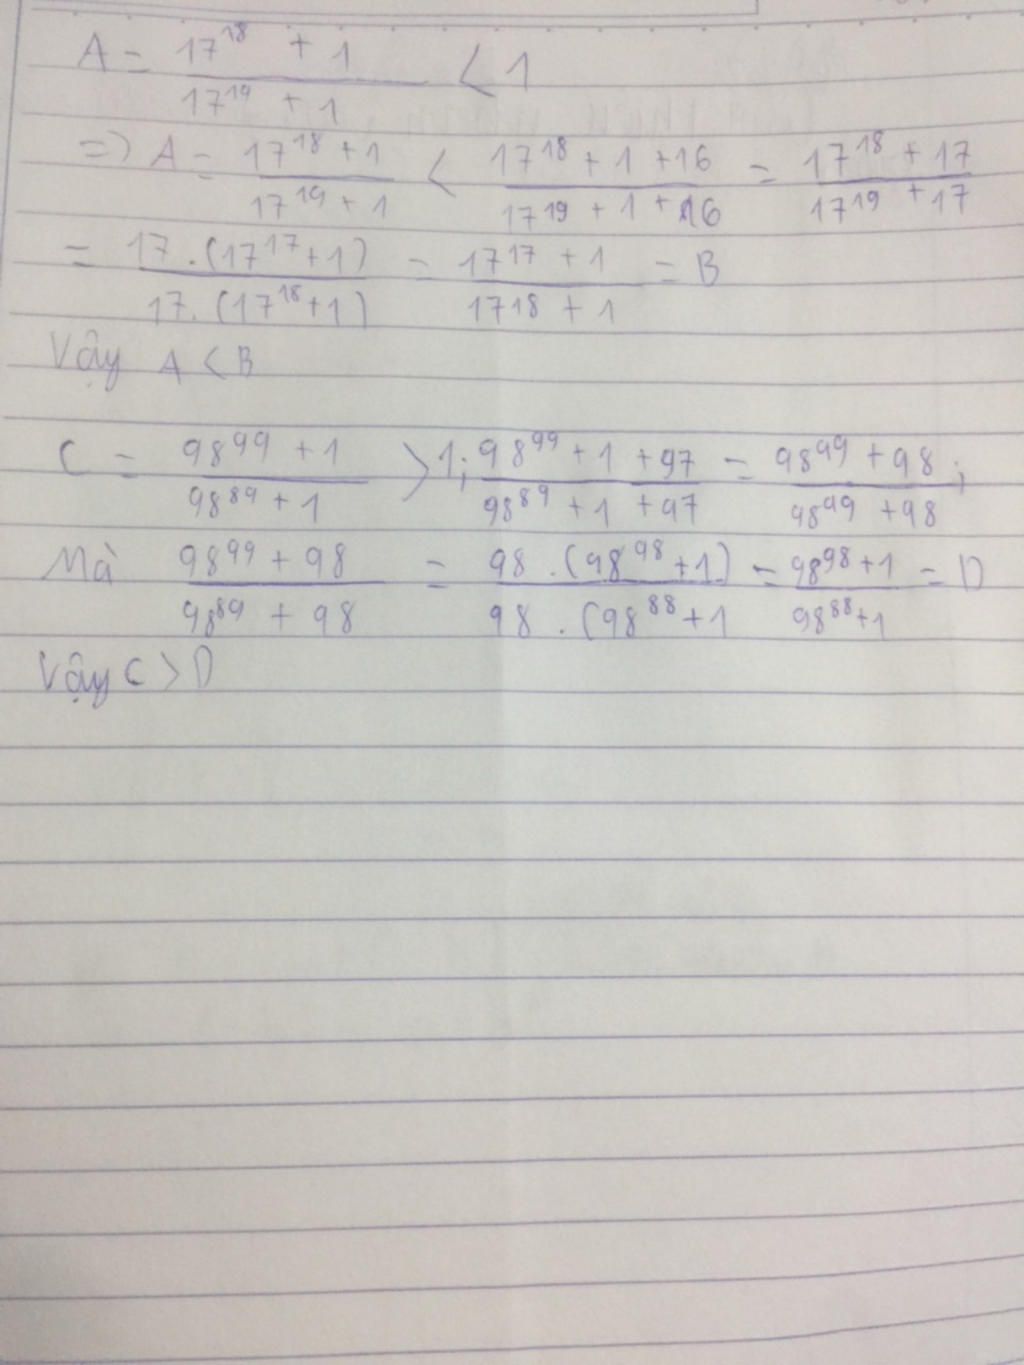 A = \frac{17^{18} + 1}{17^{19} + 1} < 1
=> A = \frac{17^{18} + 1}{17^{19} + 1} < \frac{17^{18} + 1 + 16}{17^{19} + 1 + 16} = \frac{17^{18} + 17}{17^{19} + 17}
= \frac{17 . (17^{17} + 1)}{17. (17^{18} + 1)} = \frac{17^{17} + 1}{17^{18} + 1} = B
Vậy A < B
C = \frac{98^{99} + 1}{98^{89} + 1} > 1; \frac{98^{99} + 1 + 97}{98^{89} + 1 + 97} = \frac{98^{99} + 98}{98^{99} + 98};
Mà \frac{98^{99} + 98}{98^{89} + 98} = \frac{98 . (98^{98} + 1)}{98 . (98^{88} + 1} = \frac{98^{98} + 1}{98^{88} + 1} = D
Vậy C > D